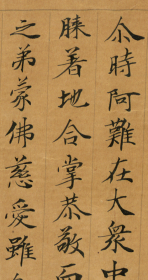 尒時阿難在大衆中
睞著地合掌恭敬向
之弟蒙佛慈愛雖